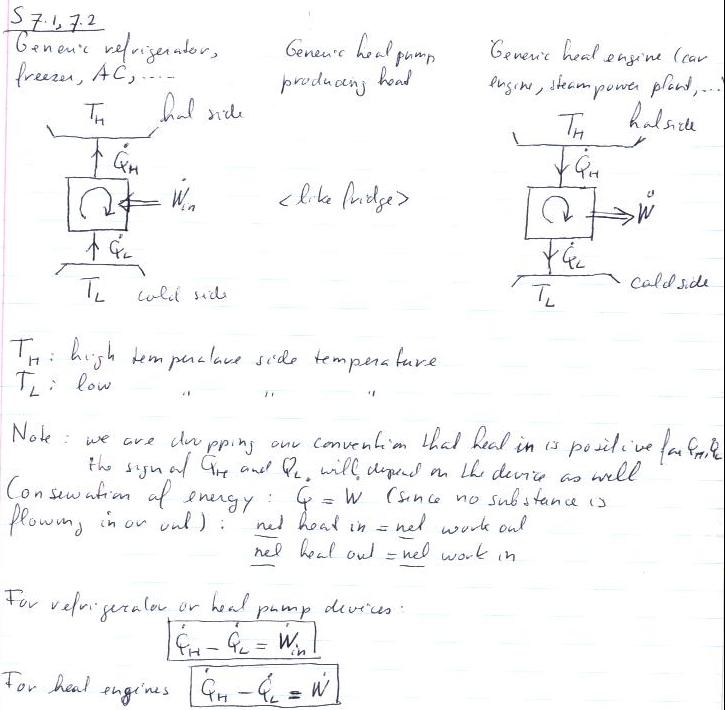 S 7.1, 7.2
Generic refrigerator, Generic heat pump Generic heat engine (car
freezer, AC, ..... producing heat engine, steam power plant, ...
T_H hot side T_H hot side
Q̇_H Q̇_H
Ẇ_in <like fridge> Ẇ
Q̇_L Q̇_L
T_L cold side T_L cold side
T_H : high temperature side temperature
T_L : low " " "
Note : we are dropping our convention that heat in is positive for Q_H, Q_L
the sign of Q_H and Q_L will depend on the device as well
Conservation of energy : Q̇ = W (since no substance is
flowing in or out) : net heat in = net work out
net heat out = net work in
For refrigerator or heat pump devices:
Q̇_H - Q̇_L = Ẇ_in
For heat engines Q̇_H - Q̇_L = Ẇ